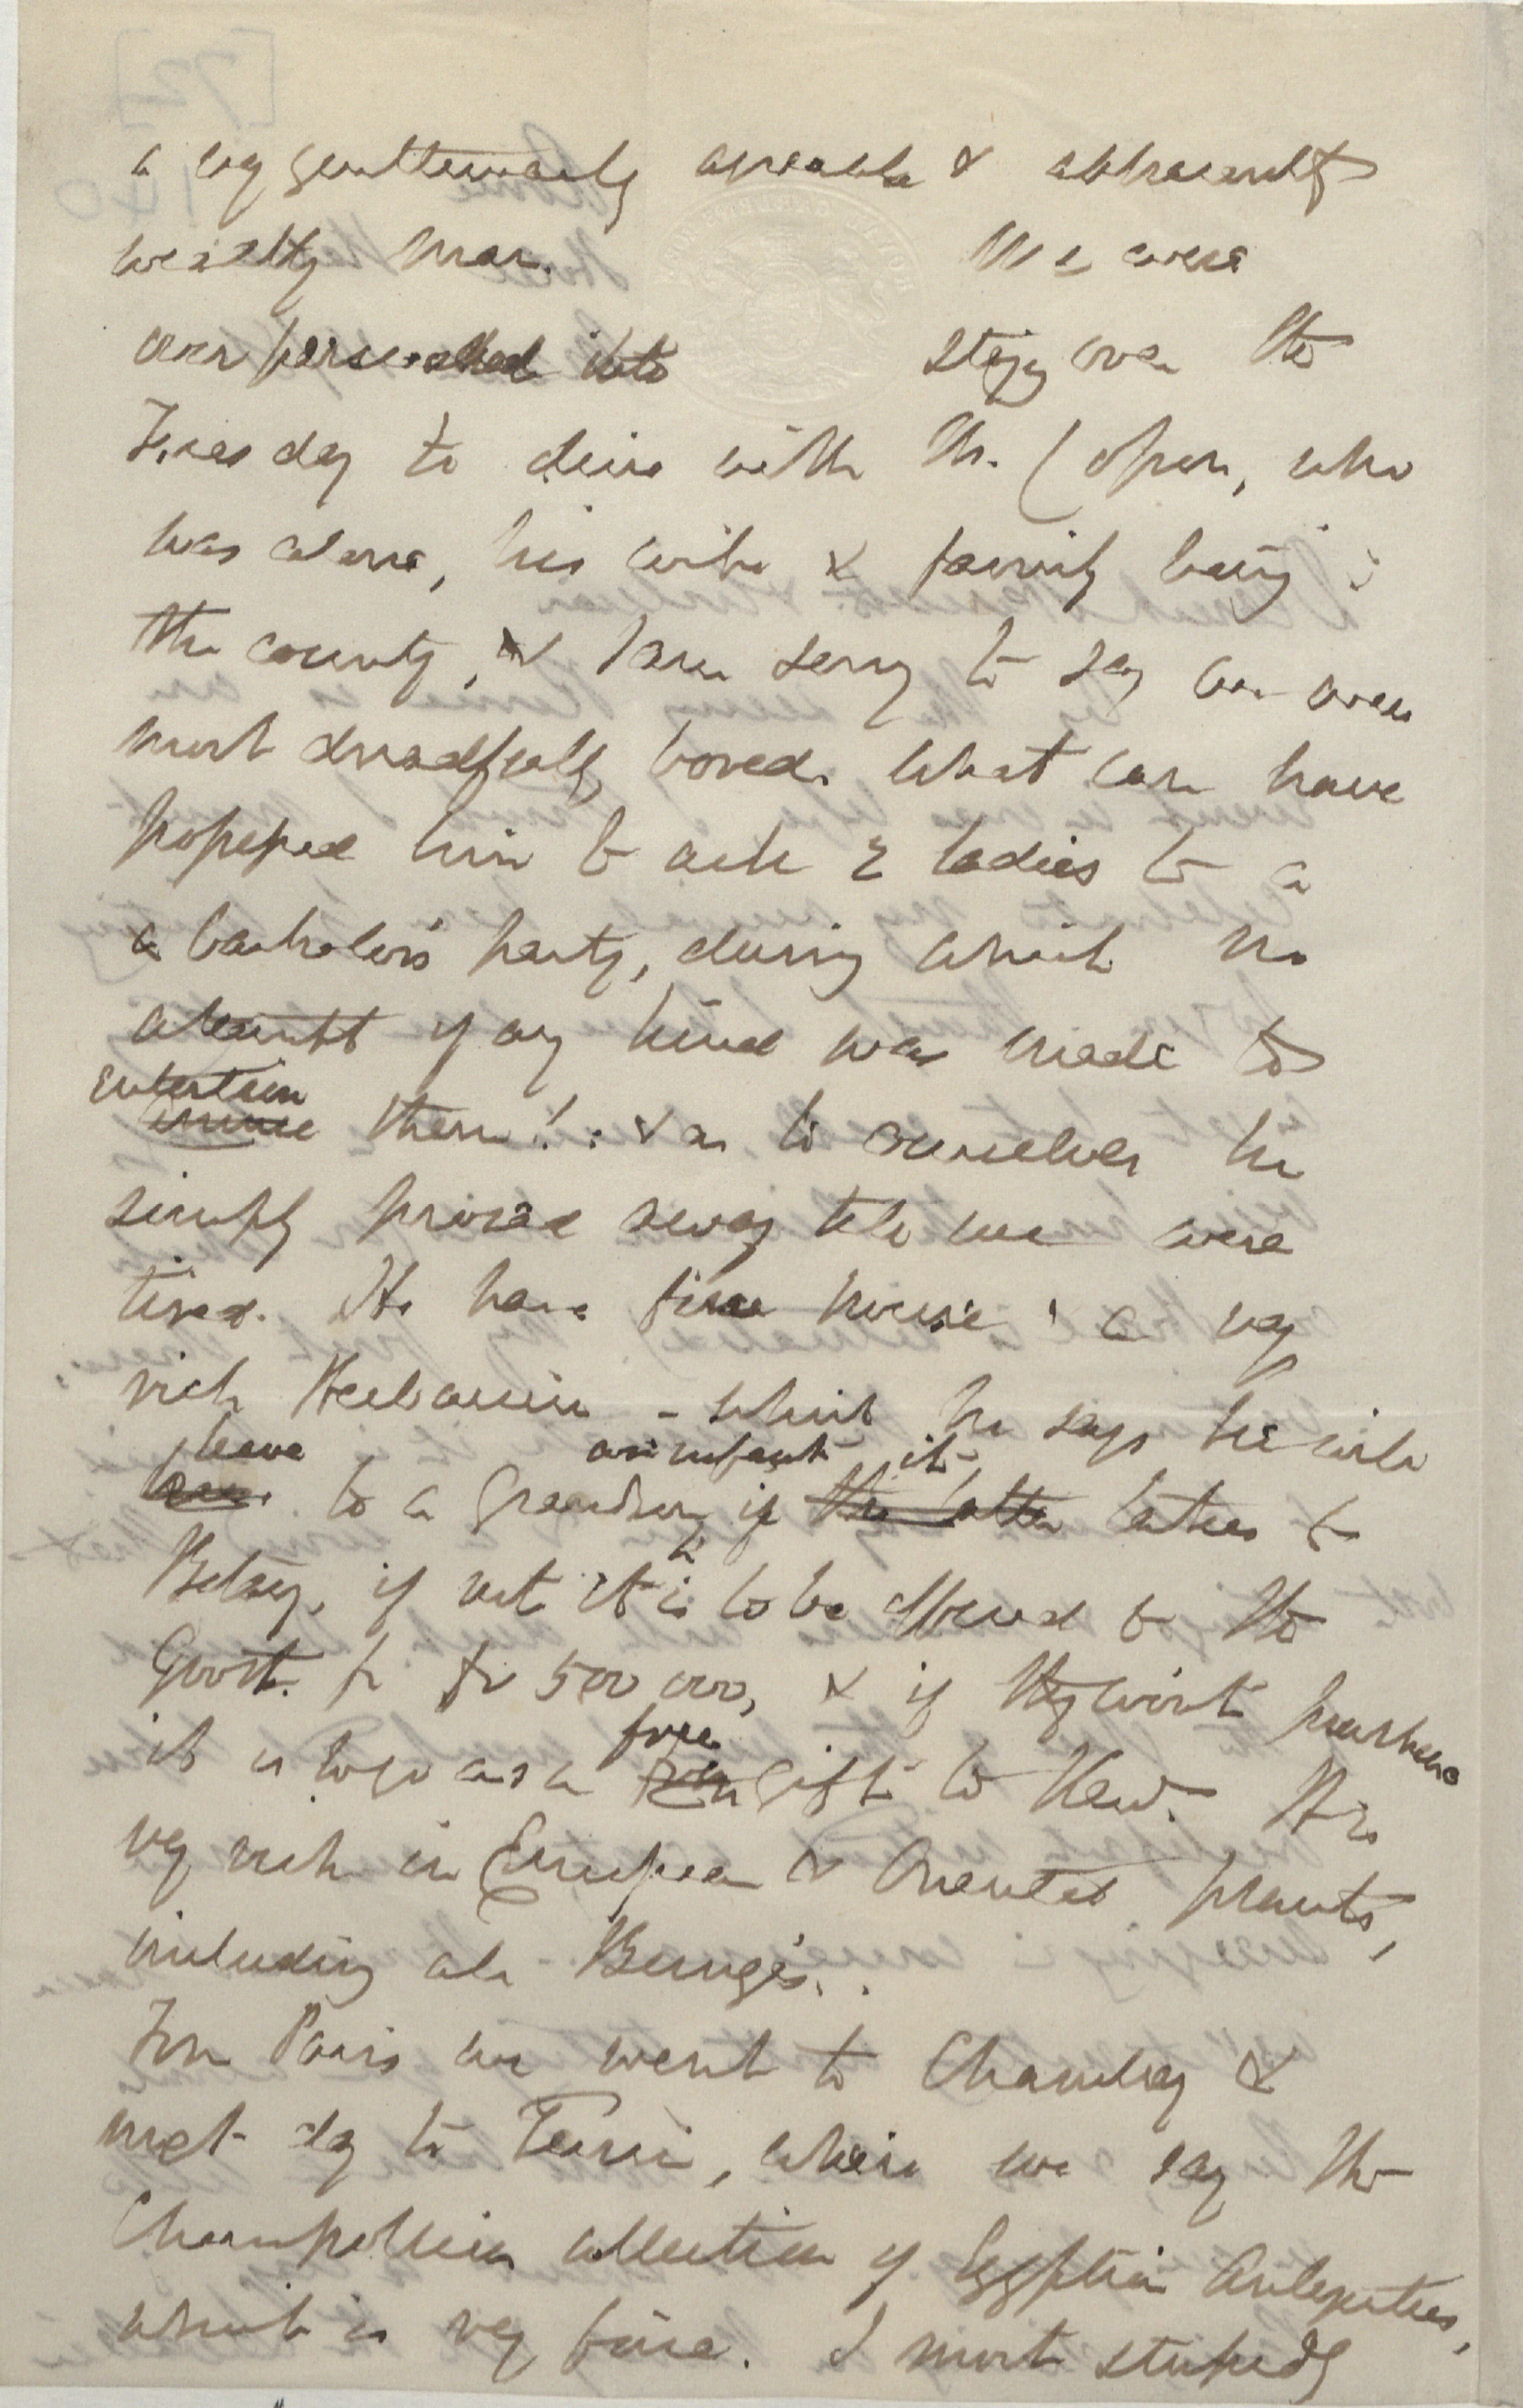 a very gentlemanly agreeable & apparently
wealthy man. We were
over persuaded into stayg over the
Tuesday to dine with M. Cosson, who
was alone, his wife & family being i
the country, & I am sorry to say we were
most dreadfully bored. What can have
possessed him to ask 2 ladies to a
a bachelors party, during which no
attempt of any kind was made to
entertain
amuse them! : & as to ourselves he
simply prosed away till we were
tired. He has a fine house & a very
rich Herbarium - which he says he will
leave an infant it
to a Grandson, if the latter takes to
Botany, if not it is to be offered to the
Govt. for fr 500 000, & if they wont purchase
free
it is to go as a gift to Kew. It is
very rich in European & Oriental plants,
including all Bunge's.
From Paris we went to Chambery &
next day to Turin, where we saw the
Champollion collection of Egyptian Antiquities,
which is very fine. I most stupidly